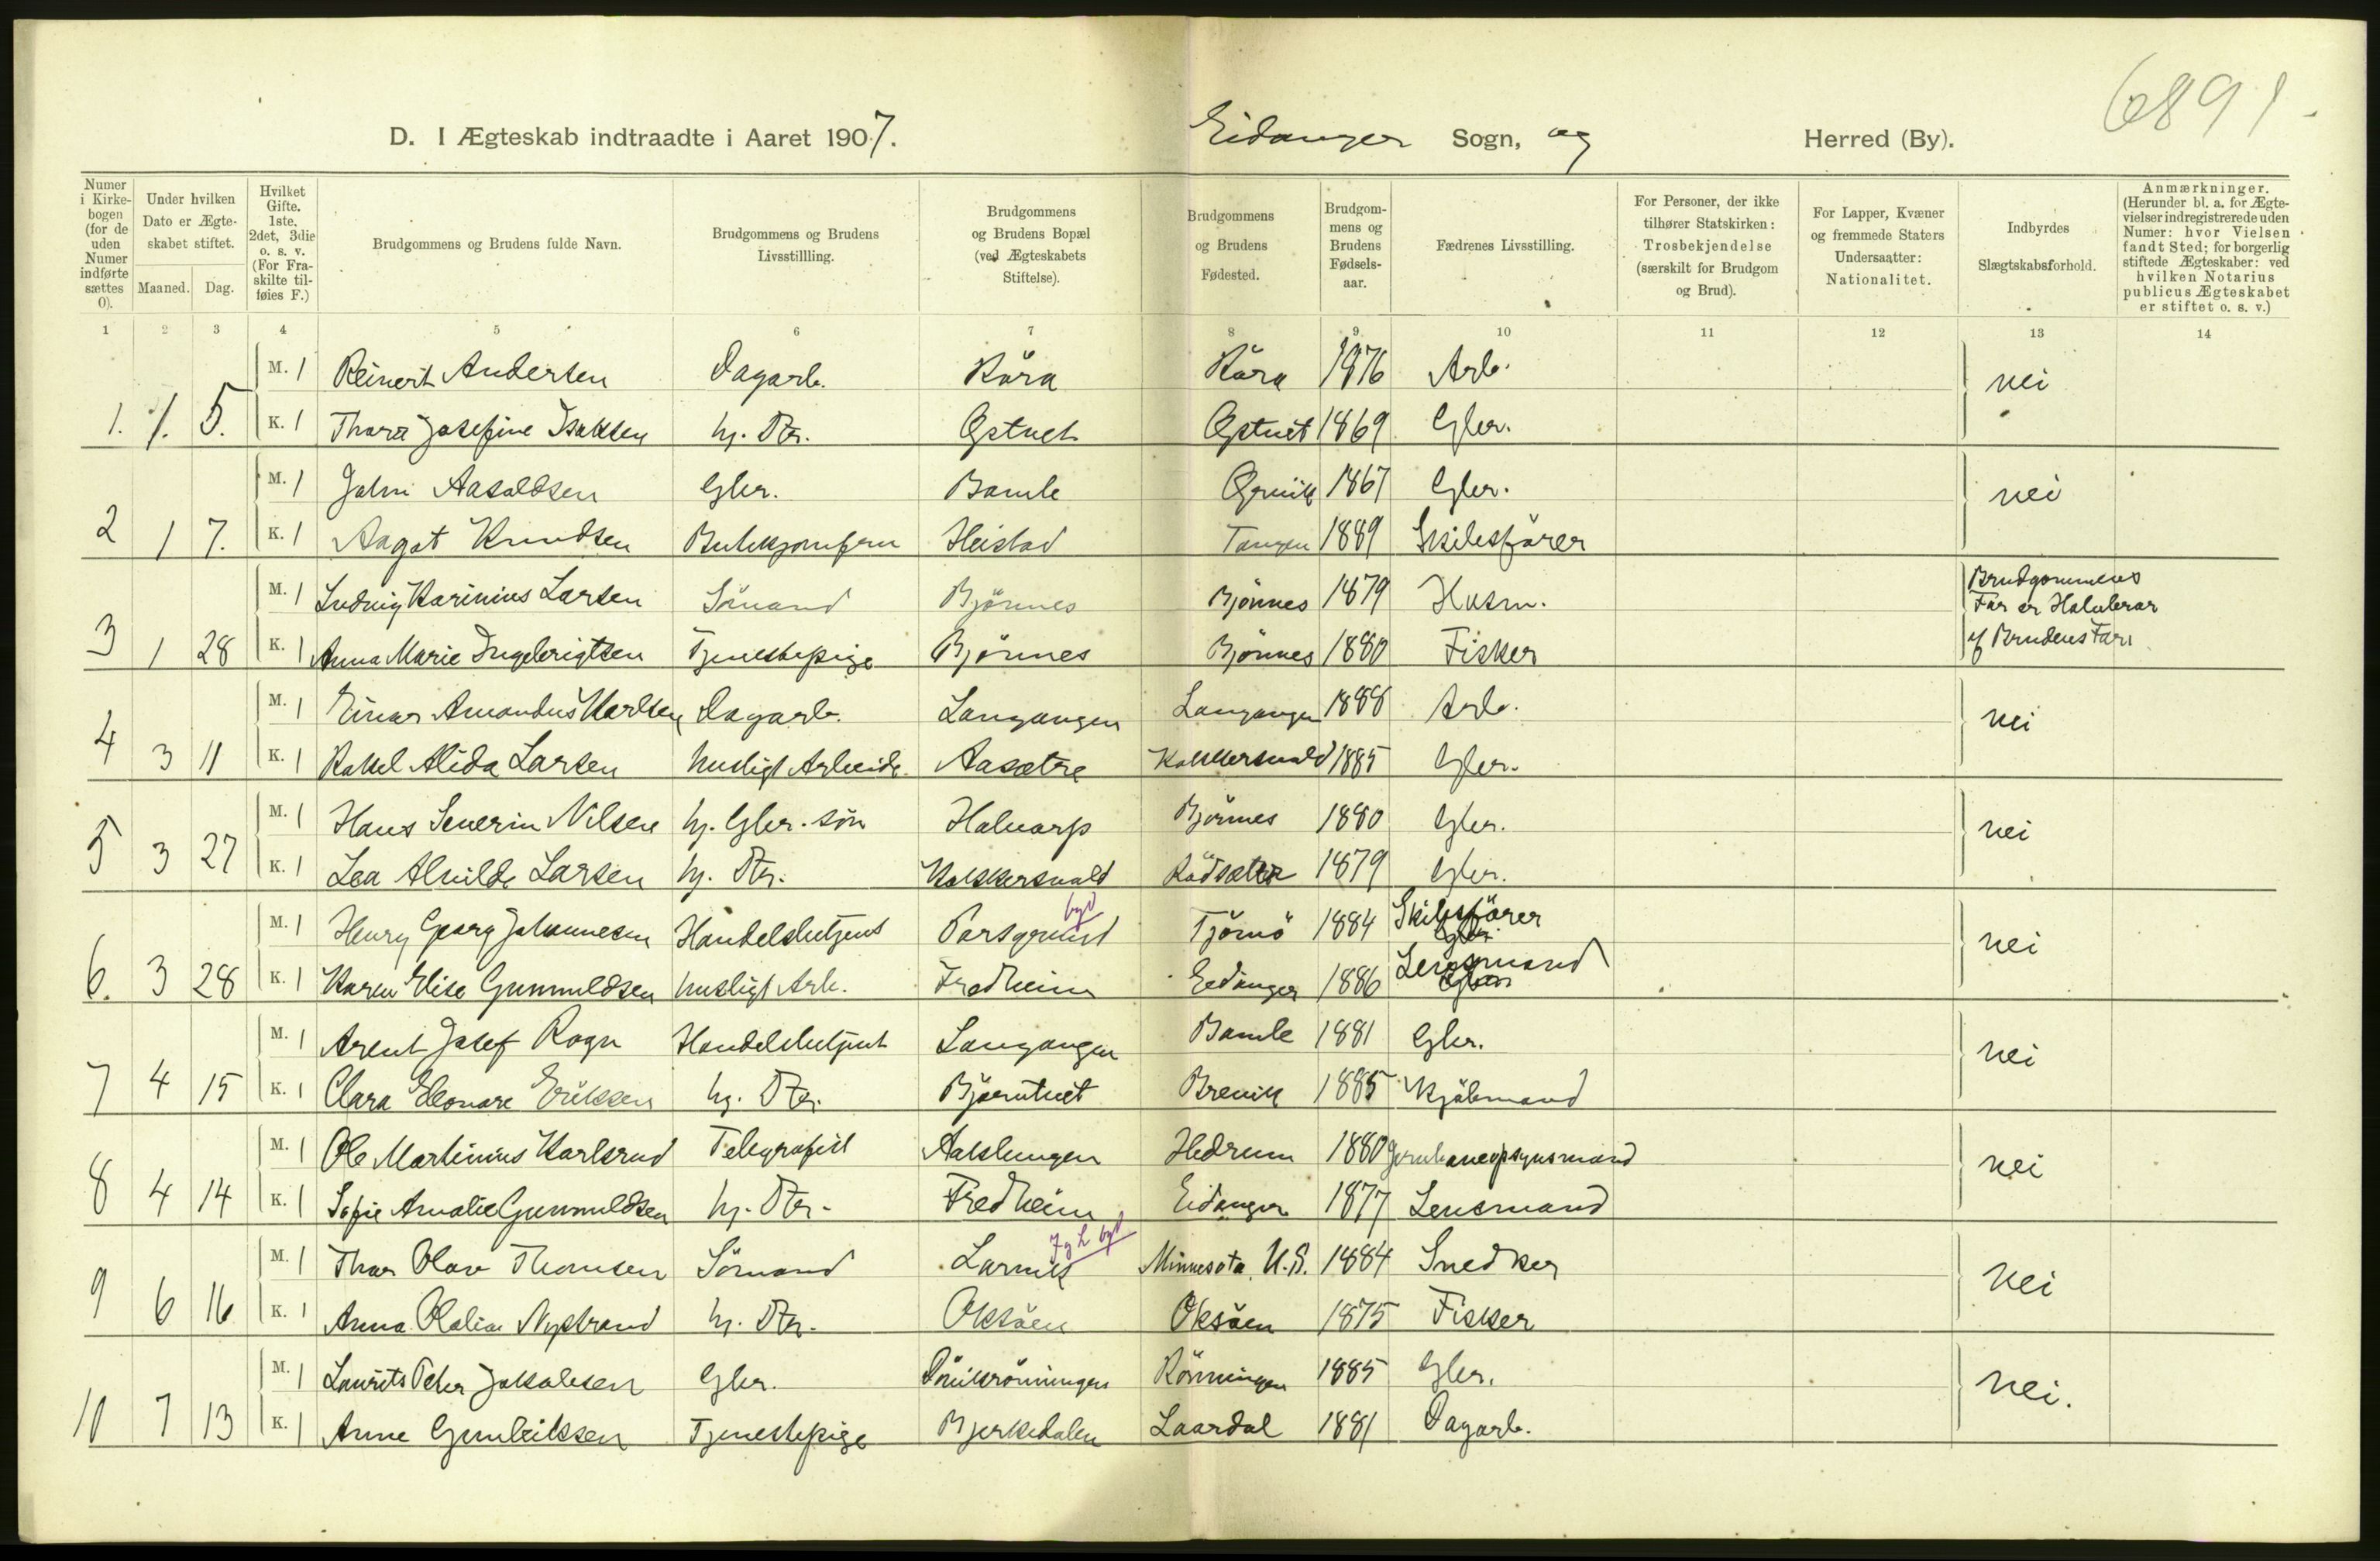 6891-
D. I Ægteskab indtraadte i Aaret 1907. Eidanger Sogn, og Herred (By).
Numer i Kirkebogen (for de uden Numer indførte sættes 0).
Under hvilken Dato er Ægteskabet stiftet. Maaned. Dag.
Hvilket Gifte. 1ste, 2det, 3die o. s. v. (For Fraskilte tilføies F.)
Brudgommens og Brudens fulde Navn.
Brudgommens og Brudens Livsstillling.
Brudgommens og Brudens Bopæl (ved Ægteskabets Stiftelse).
Brudgommens og Brudens Fødested.
Brudgommens og Brudens Fødselsaar.
Fædrenes Livsstilling.
For Personer, der ikke tilhører Statskirken: Trosbekjendelse (særskilt for Brudgom og Brud).
For Lapper, Kvæner og fremmede Staters Undersaatter: Nationalitet.
Indbyrdes Slægtskabsforhold.
Anmærkninger. (Herunder bl. a. for Ægtevielser indregistrerede uden Numer: hvor Vielsen fandt Sted; for borgerlig stiftede Ægteskaber: ved hvilken Notarius publicus Ægteskabet er stiftet o. s. v.)
1 2 3 4 5 6 7 8 9 10 11 12 13 14
M. 1 Reinert Andersen Dagarb. Röra Röra 1876 Arb. nei
1. 1. 5. K. 1 Thora Josefine Isaksen hj. Dtr. Østvet Østvet 1869 Gbr.
M. 1 John Aasoldsen Gbr. Bamle 1867 Gbr. nei
2 1 7. K. 1 Aagot Knudsen Butikjomfru Heistad Tangen 1889 Skibsförer
M. 1 Ludvig Karinius Larsen Sömand Björnnes Björnnes 1879 Husm. Brudgommens Far er Halvbror
3 1 28 K. 1 Anna Marie Ingebrigtsen Tjenestepige Björnnes Björnnes 1880 Fisker af Brudens Far
M. 1 Einar Amandus Karlsen Dagarb. Langangen Langangen 1888 Arb. nei
4 3 11 K. 1 Rakel Alida Larsen husligt Arbeide Aasætre Kokkersvold 1885 Gbr.
M. 1 Hans Severin Nilsen hj. Gbr. sön Halvarp Björnnes 1880 Gbr. nei
5 3 27 K. 1 Lea Alvilde Larsen hj. Dtr. Kokkersvold Rödsæter 1879 Gbr.
M. 1 Henry Georg Johannesen Handelsbetjent Porsgrund byd Tjömö 1884 Skibsförer nei
6. 3 28 K. 1 Karen Elise Gunnuldsen husligt Arb. Fredheim Eidanger 1886 Lensmand
M. 1 Arent Josef Rogn Handelsbetjent Langangen Bamle 1881 Gbr. nei
7 4 15 K. 1 Clara Eleonore Eriksen hj. Dtr. Björntvet Brevik 1885 Kjöbmand
M. 1 Ole Martinius Karlsrud Telegrafist Aaklungen Hedrum 1880 Jernbaneopsynsmand nei
8 4 14 K. 1 Sofie Amalie Gunnuldsen hj. Dtr. Fredheim Eidanger 1877 Lensmand
M. 1 Thor Olav Thomsen Sömand Larvik byd Minnesota, U.S. 1884 Snedker nei
9 6 16 K. 1 Anna Olalia Nystrand hj. Dtr. Oksöen Oksöen 1875 Fisker
M. 1 Laurits Peter Jakobsen Gbr. Rönningen 1885 Gbr. nei.
10 7 13 K. 1 Anne Gunleiksen Tjenestepige Bjerkedalen Laardal 1881 Dagarb.